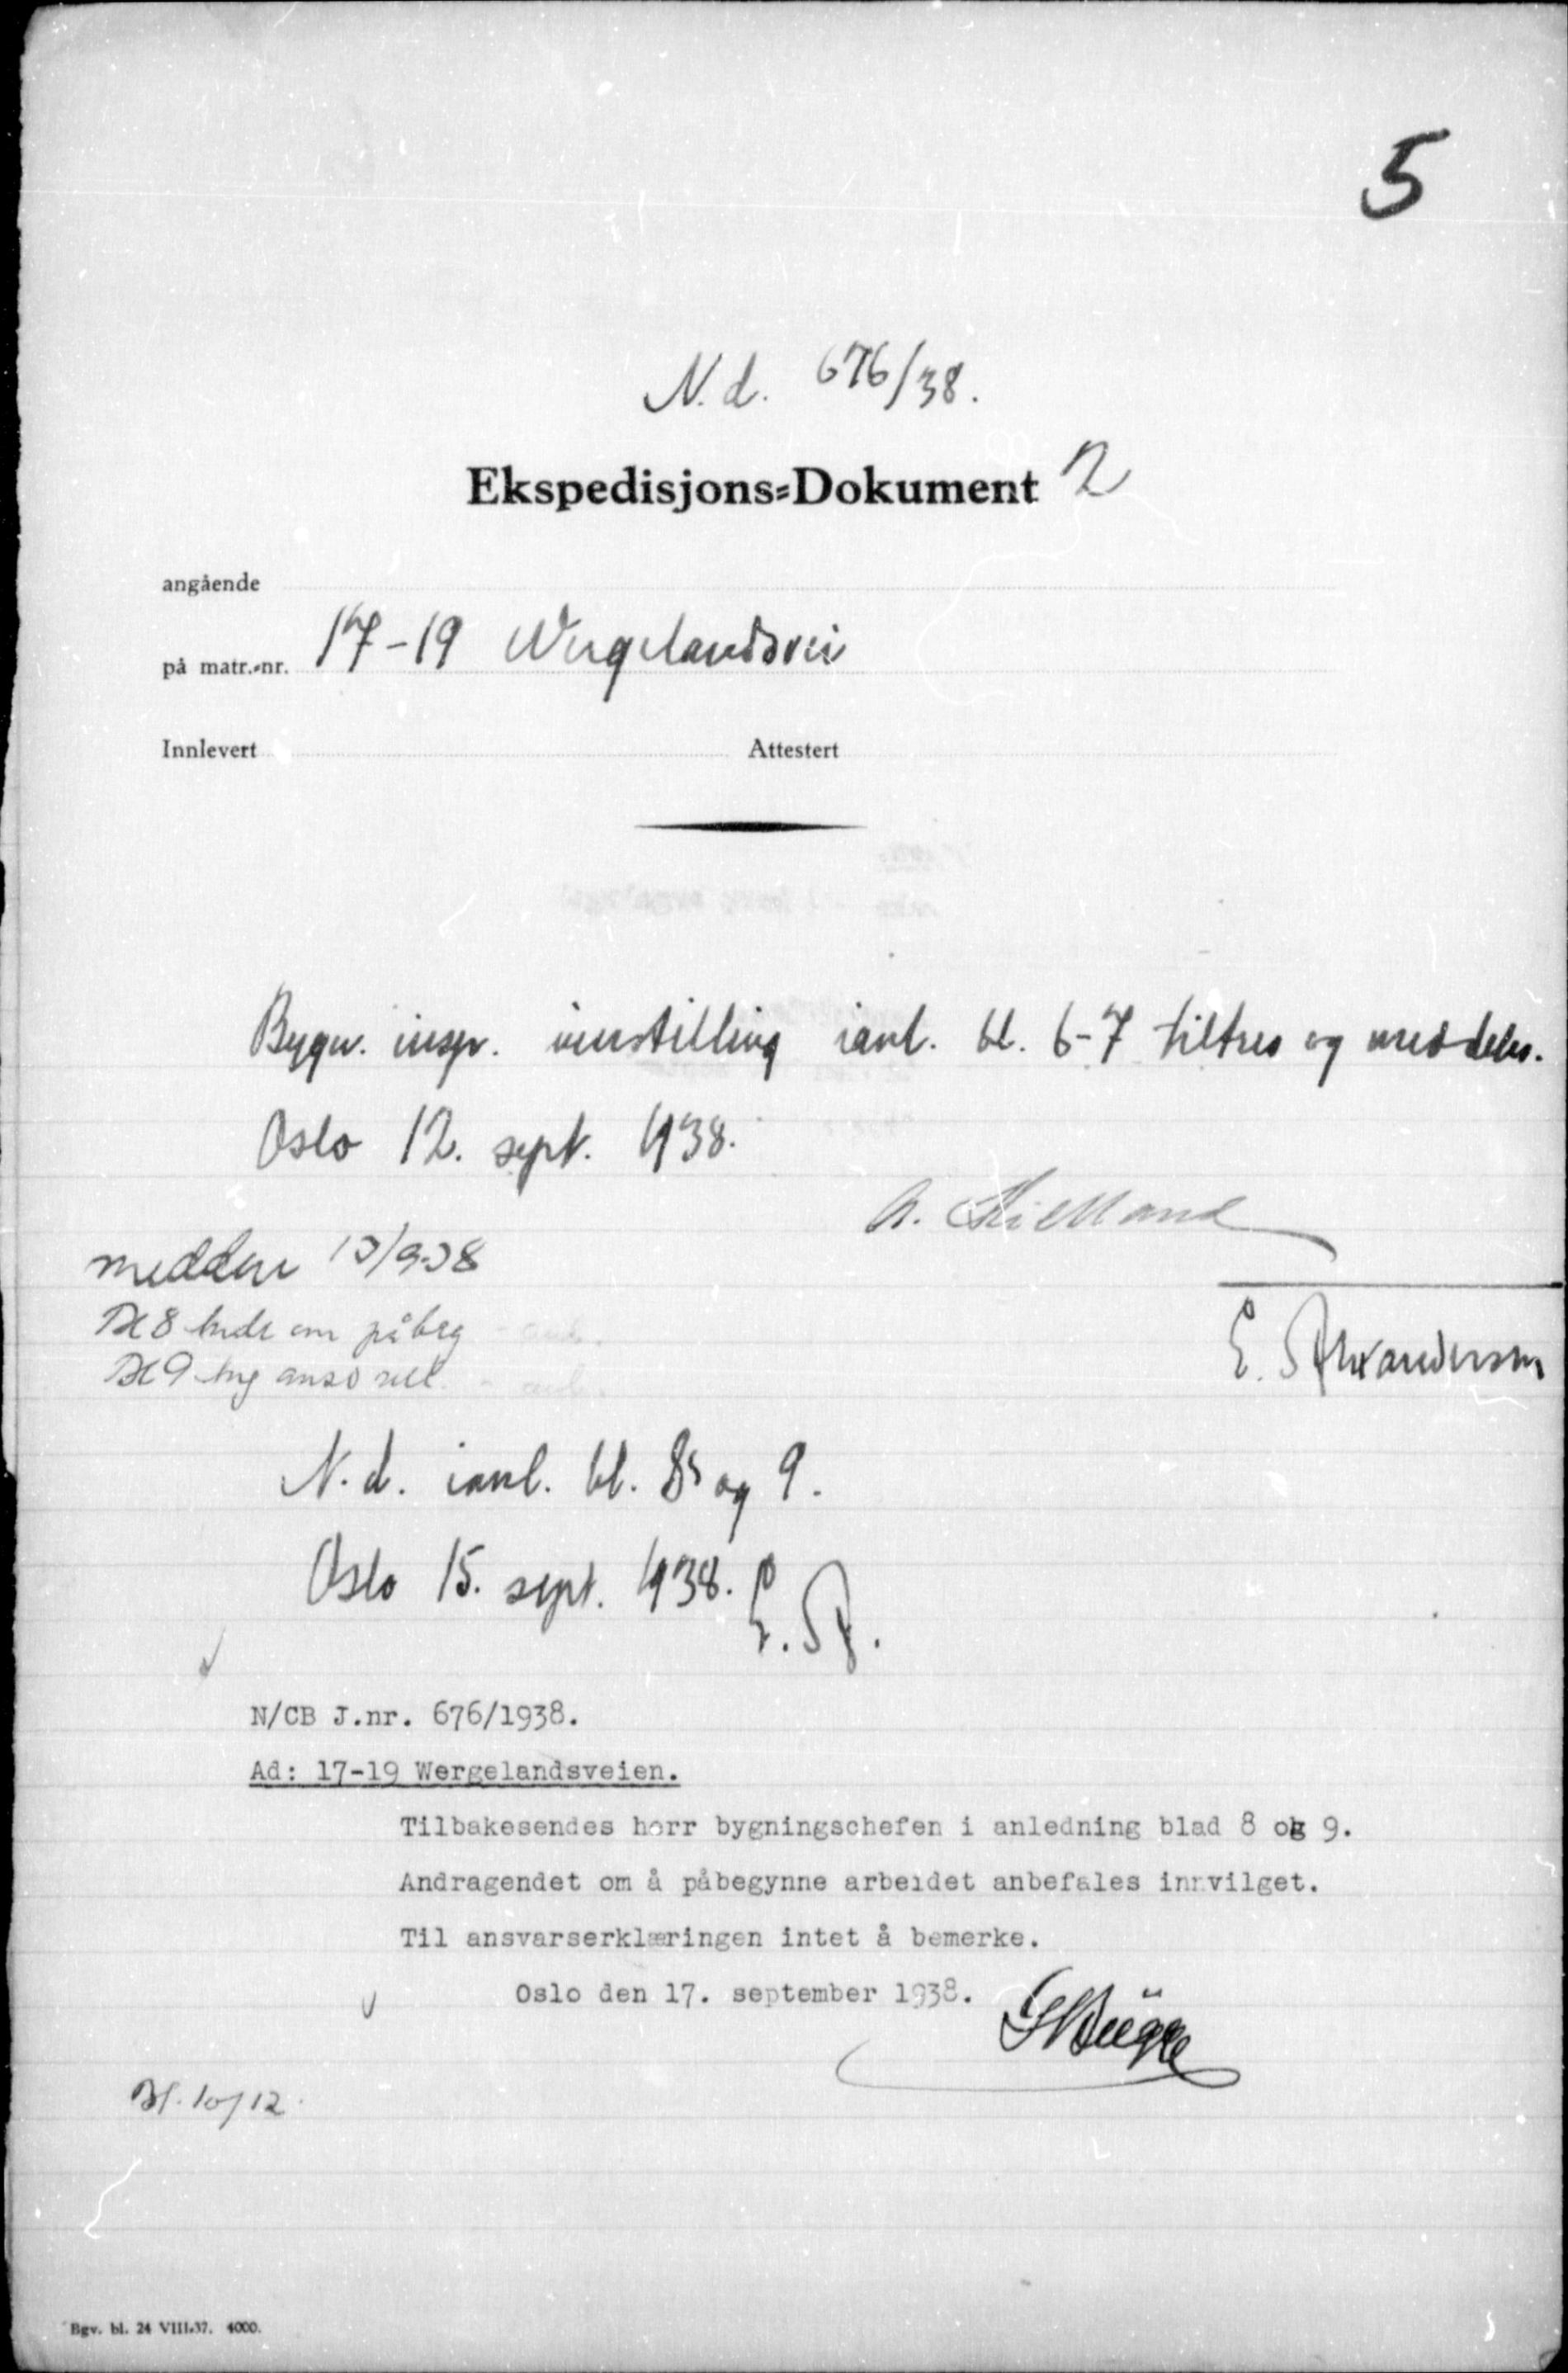 5
N.d. 676/38.
Ekspedisjons-Dokument 2
angående
på matr.-nr. 17-19 Wergelandsvei
Innlevert Attestert
Bygn. insp. innstilling ianl. bl. 6-7 tiltres og meddeles.
Oslo 12. sept. 1938.
E. Alexandersen
Bl 8 om påbeg
Bl 9
N.d. ianl. bl. 8 og 9.
Oslo 15. sept. 1938.
N/CB J.nr. 676/1938.
Ad: 17-19 Wergelandsveien.
Tilbakesendes herr bygningschefen i anledning blad 8 og 9.
Andragendet om å påbegynne arbeidet anbefales innvilget.
Til ansvarserklæringen intet å bemerke.
Oslo den 17. september 1938.
Bl. 10/12.
Bgv. bl. 24 VIII-37. 4000.